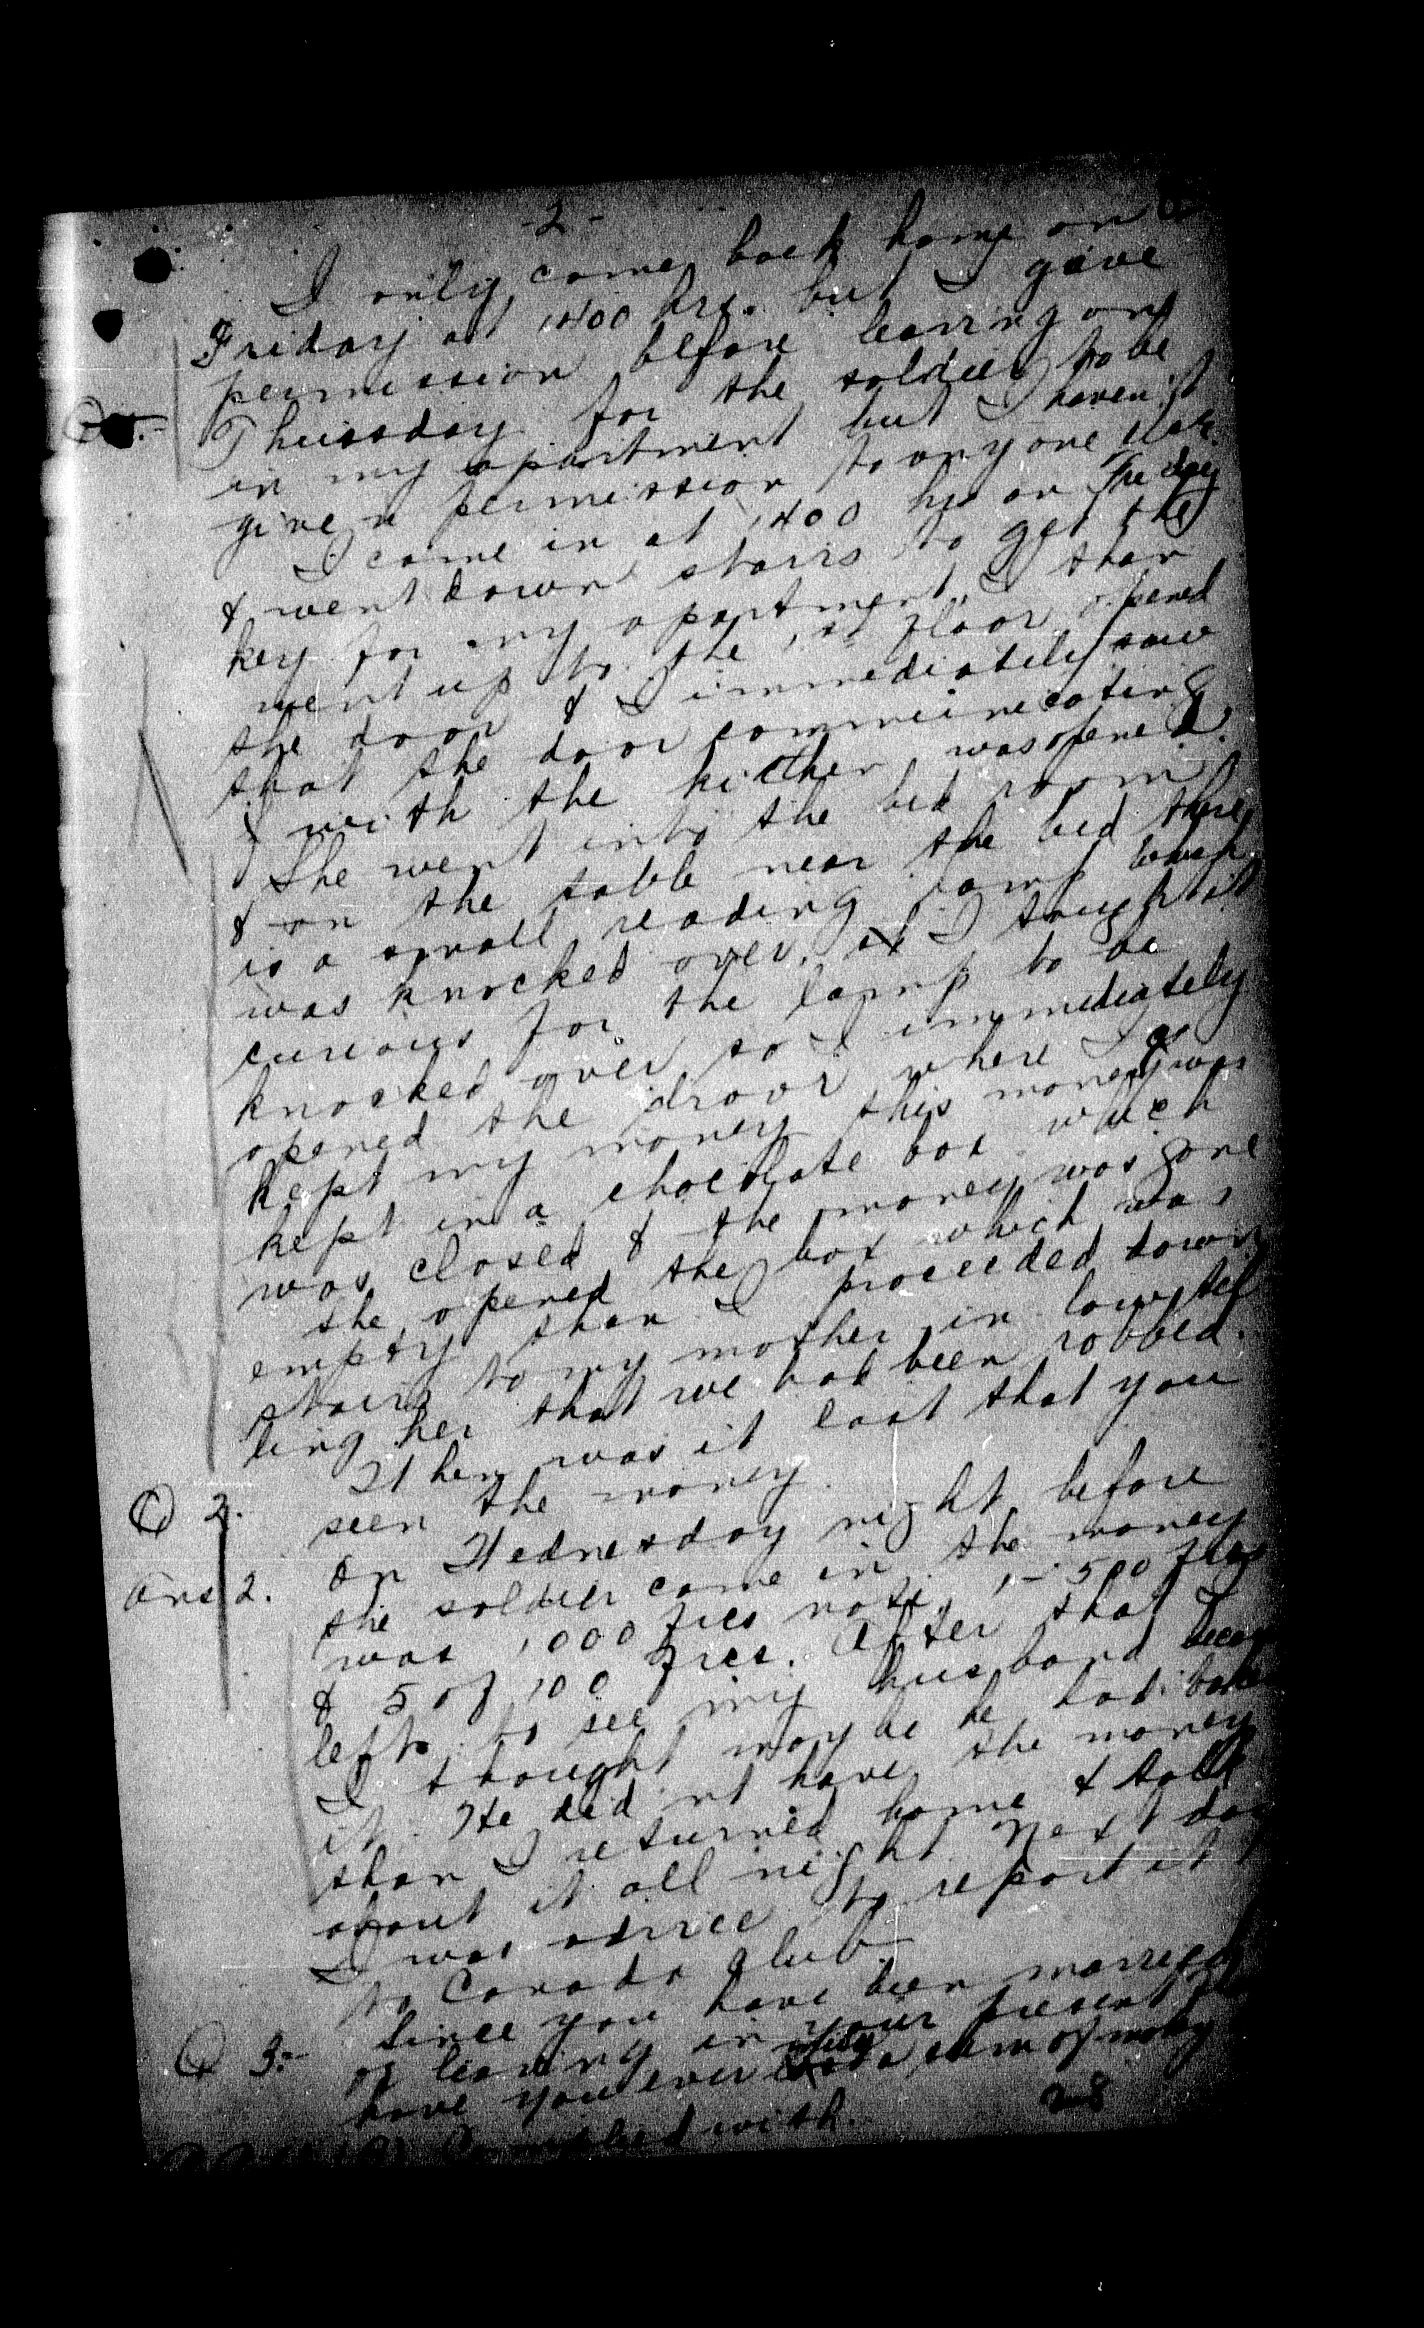 -2-
I only came back home on
Friday at 1400 hrs. but I gave
permission before leaving on
Thursday for the soldier to be
in my apartment but I haven't
given permission to anyone else.
I came in at 1400 hrs on Friday
& went down stairs to get the
key for my apartment, I than
went up to the 1st floor opened
the door & I immediately saw
that the door communicating
with the kitchen was opened.
She went into the bed room
& on the table near the bed there
is a small reading lamp which
was knocked over, I tought it
curious for the lamp to be
knocked over so I immediately
opened the droor where I
kept my money this money was
kept in a chocolate box which
was closed & the money was gone
She opened the box which was
empty than I proceeded down
stairs to my mother in law tel
ling her that we had been robbed.
Q 2. When was it last that you
seen the money.
Ans 2. On Wednesday night before
the soldier came in the money
was 1000 frcs note, 1-500 frcs
& 5 of 100 frcs. After that I
left to see my husband because
I thought maybe he had taken
it. He did nt have the money
than I returned home & talk
about it all night. Next day
I was advice to report it
to Canada Club.
Q 3.- Since you have been married
or leaving in your present
have you ever a sum of money